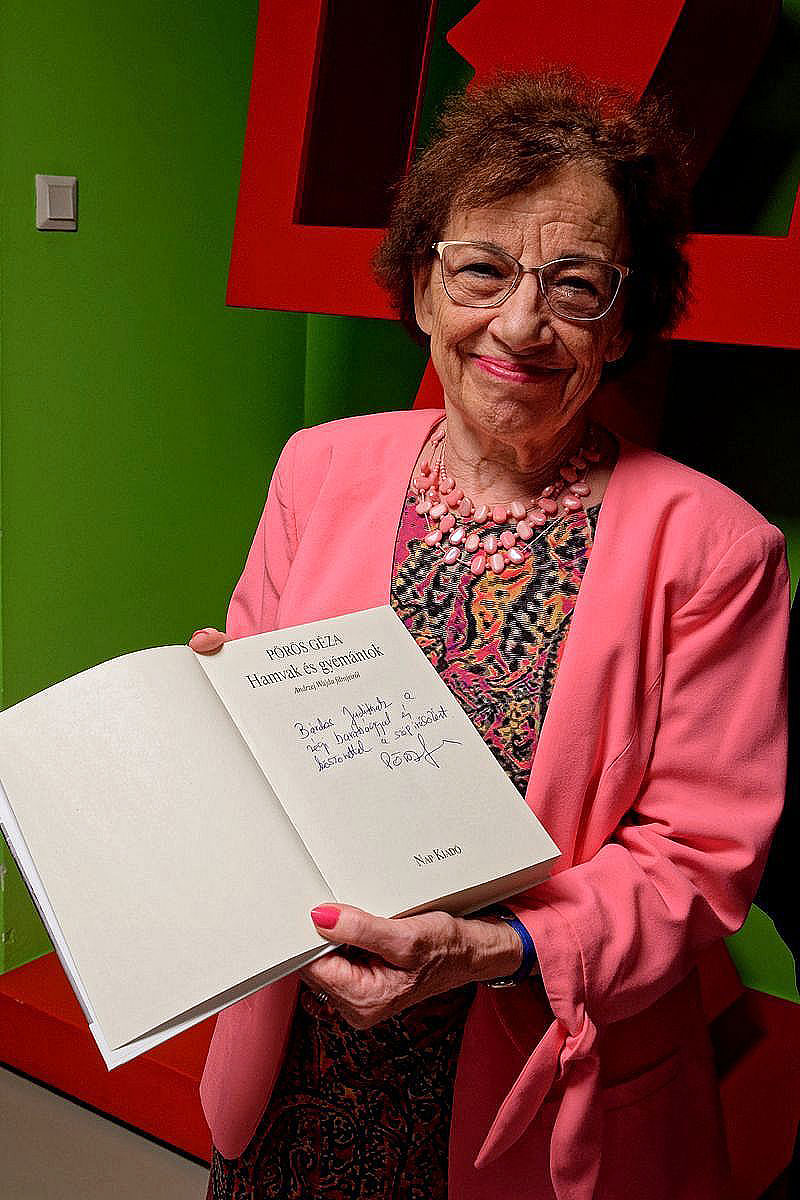 PÖRÖS GÉZA
Hamvak és gyémántok
Andrzej Wajda filmjeiről
Bárdos Juditnak a
régi barátsággal és
köszönettel a szép írásért
NAP KIADÓ